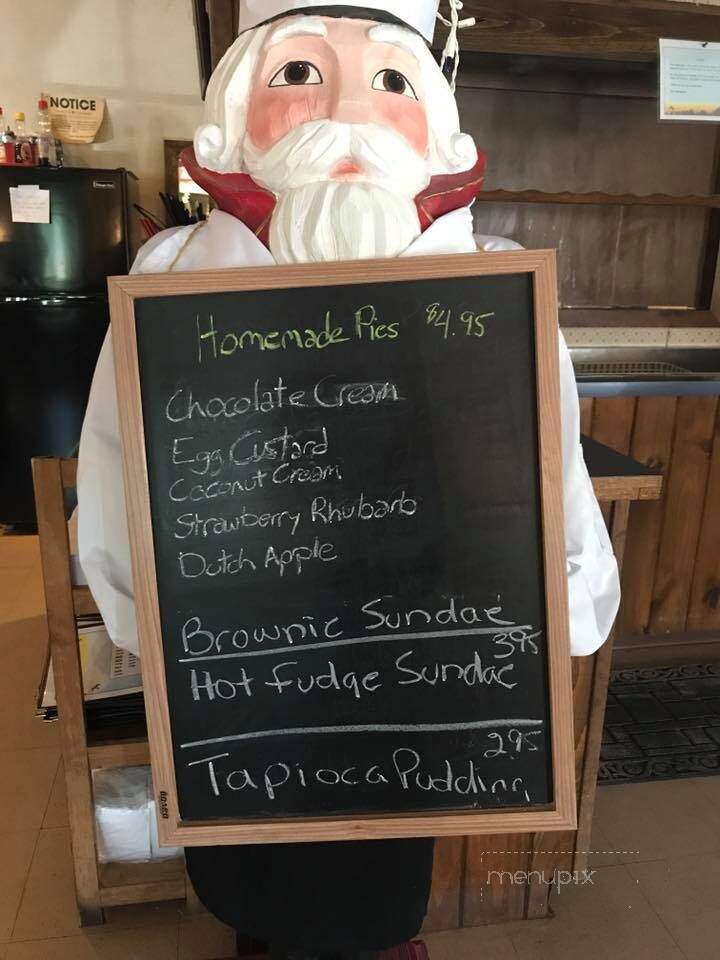 NOTICE
Homemade Pies $4.95
Chocolate Cream
Egg Custard
Coconut Cream
Strawberry Rhubarb
Dutch Apple
Brownie Sundae
3.95
Hot Fudge Sundae
2.95
Tapioca Pudding
menupix